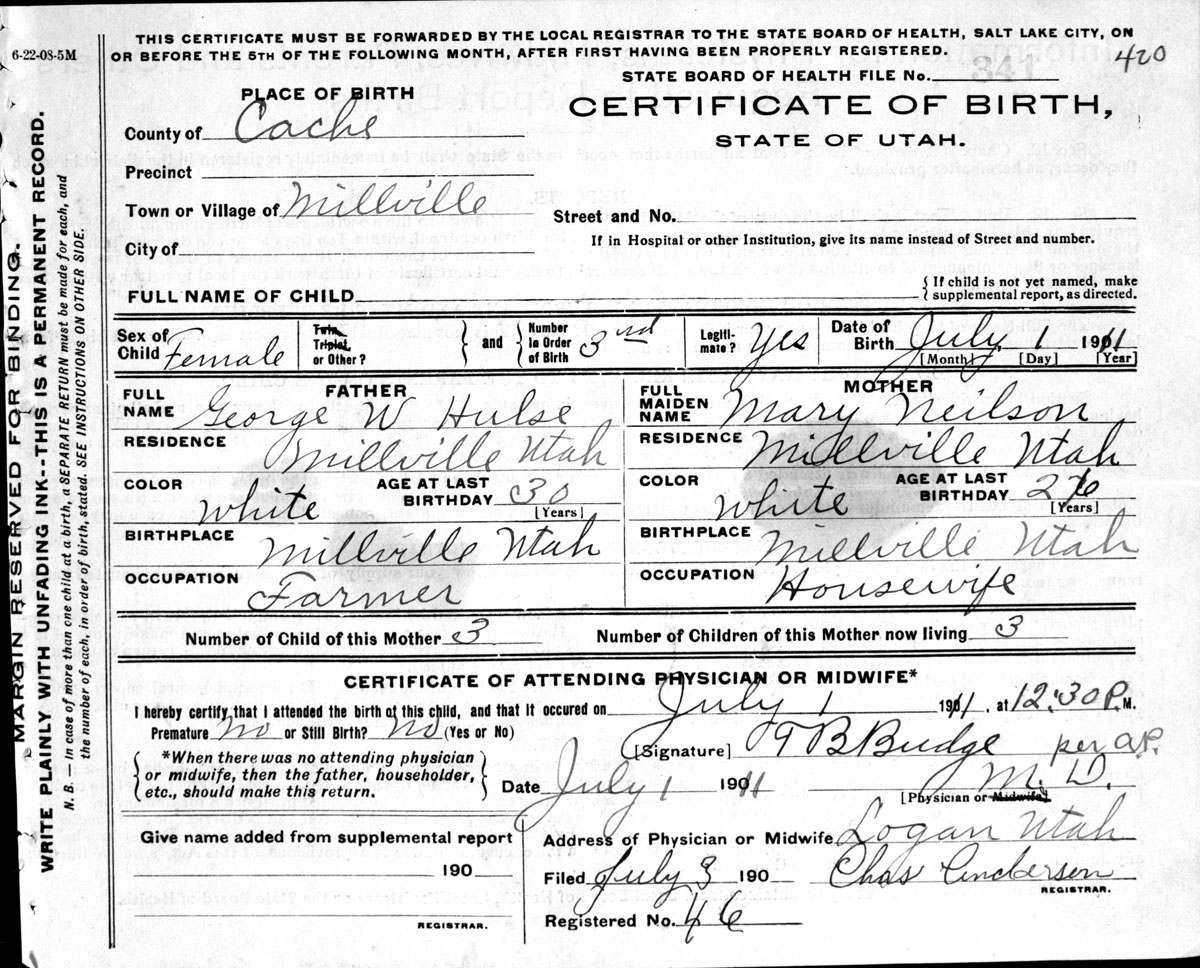 6-22-08-5M
THIS CERTIFICATE MUST BE FORWARDED BY THE LOCAL REGISTRAR TO THE STATE BOARD OF HEALTH, SALT LAKE CITY, ON
OR BEFORE THE 5TH OF THE FOLLOWING MONTH, AFTER FIRST HAVING BEEN PROPERLY REGISTERED.
420
STATE BOARD OF HEALTH FILE No. 341
PLACE OF BIRTH
CERTIFICATE OF BIRTH,
STATE OF UTAH.
County of Cache
Precinct
Town or Village of Millville
Street and No.
City of
If in Hospital or other Institution, give its name instead of Street and number.
FULL NAME OF CHILD
{ If child is not yet named, make
supplemental report, as directed.
Sex of Child Female
Twin, Triplet, or Other?
and
Number in Order of Birth 3rd
Legiti-mate? Yes
Date of Birth July 1 1911
[Month] [Day] [Year]
FATHER
FULL NAME George W Hulse
RESIDENCE Millville Utah
COLOR White AGE AT LAST BIRTHDAY 30
[Years]
BIRTHPLACE Millville Utah
OCCUPATION Farmer
MOTHER
FULL MAIDEN NAME Mary Neilson
RESIDENCE Millville Utah
COLOR White AGE AT LAST BIRTHDAY 26
[Years]
BIRTHPLACE Millville Utah
OCCUPATION Housewife
Number of Child of this Mother 3 Number of Children of this Mother now living 3
CERTIFICATE OF ATTENDING PHYSICIAN OR MIDWIFE*
I hereby certify that I attended the birth of this child, and that it occured on July 1 1911, at 12:30 P. M.
Premature No or Still Birth? No (Yes or No)
[Signature] T B Budge per A.P.
{ *When there was no attending physician
or midwife, then the father, householder,
etc., should make this return. }
Date July 1 1911 M. D.
[Physician or Midwife]
Give name added from supplemental report
190
REGISTRAR.
Address of Physician or Midwife Logan Utah
Filed July 3 190 Chas Anderson
REGISTRAR.
Registered No. 46
MARGIN RESERVED FOR BINDING.
WRITE PLAINLY WITH UNFADING INK--THIS IS A PERMANENT RECORD.
N. B. In case of more than one child at a birth, a SEPARATE RETURN must be made for each, and
the number of each, in order of birth, stated. SEE INSTRUCTIONS ON OTHER SIDE.